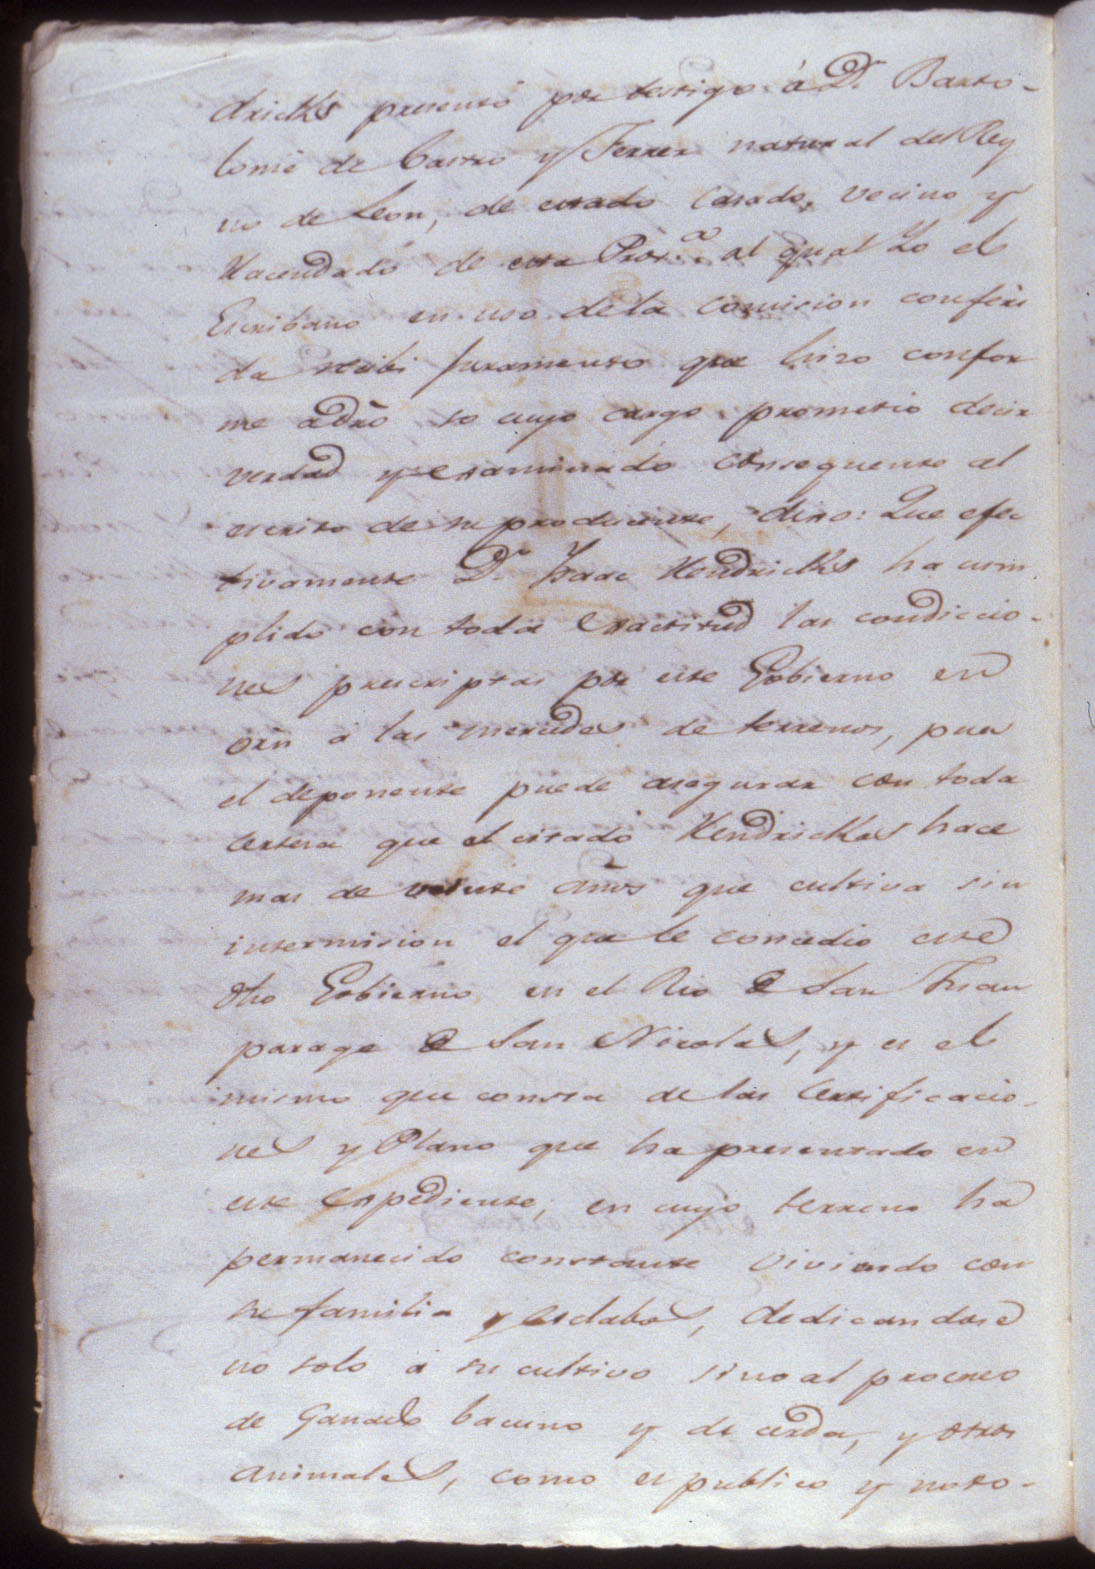 dricks presentó por testigo á D.n Barto-
lomé de Castro y Ferrer natural del Rey
no de Leon, de estado Casado, vecino y
Hacendado de esta Prov.a al qual Yo el
Escribano en uso de la comision conferi
da recibi Juramento que hizo confor
me a dro so cuyo cargo prometio decir
verdad y examinado consequente al
escrito de su producente, dixo: Que efec
tivamente D.n Isaac Hendricks ha cum
plido con toda exactitud las condiccio-
nes prescriptas por este Gobierno en
orn á las mercedes de terrenos, pues
el deponente puede asegurar con toda
certeza que el citado Hendrickes hace
mas de veinte años que cultiva sin
intermision el que le concedio este
dho Gobierno en el Rio de San Juan
parage de San Nicolas, y es el
mismo que consta de las Certificacio-
nes y Plano que ha presentado en
este expediente; en cuyo terreno ha
permanecido constante viviendo con
su familia y esclabos, dedicandose
no solo á su cultivo sino al procreo
de Ganado bacuno y de cerda, y otros
animales, como es publico y noto-